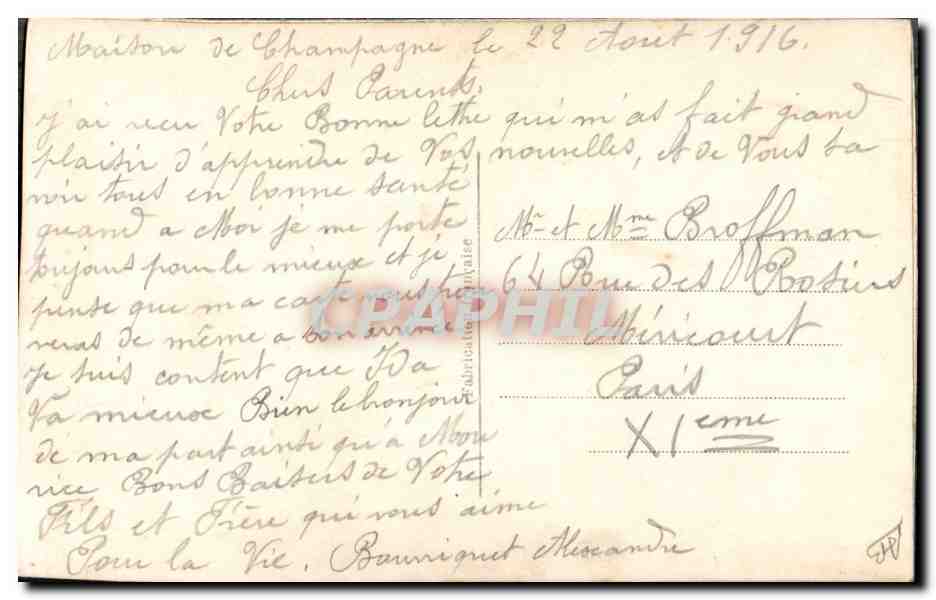 Maison de Champagne le 22 Aout 1916.
Chers Parents.
J'ai recu Votre Bonne lettre qui m'as fait grand
plaisir d'apprendre de Vos nouvelles, et de Vous sa
voir tous en bonne santé
quand a Moi je me porte
toujours pour le mieux et je
pense que ma carte vous trou
veras de même a son arrivée
Je suis content que Ida
Va mieux Bien le bonjour
de ma part ainsi qu'a Mau
rice Bons Baisers de Votre
Fils et Frère qui vous aime
Pour la Vie. Bourriquet Alexandre
Mr et Mme Broffman
64 Rue des Rosiers
Méricourt
Paris
XI eme
Fabrication Française
CPAPHIL